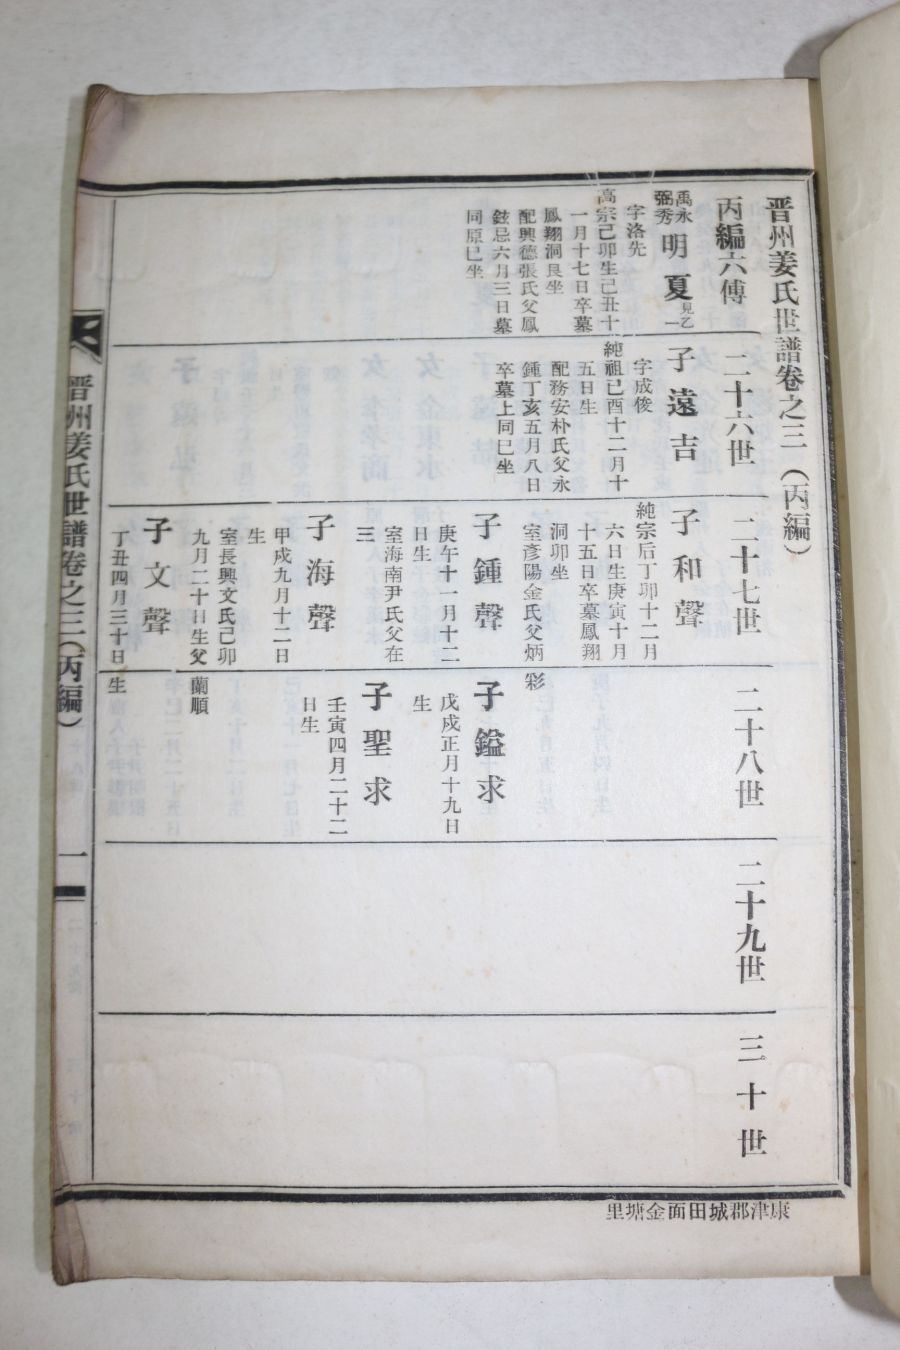 晋州姜氏世譜卷之三(丙編)
丙編六傅
二十六世
二十七世
二十八世
二十九世
三十世
禹永
弼秀
明夏
見乙
一
字洛先
高宗己卯生己丑十
一月十七日卒墓
鳳翔洞艮坐
配興德張氏父鳳
鉉忌六月三日墓
同原巳坐
子遠吉
字成俊
純祖己酉十二月十
五日生
配務安朴氏父永
鍾丁亥五月八日
卒墓上同巳坐
子和聲
純宗后丁卯十二月
六日生庚寅十月
十五日卒墓鳳翔
洞卯坐
室彦陽金氏父炳
彩
子鍾聲
庚午十一月十二
日生
室海南尹氏父在
三
子海聲
甲戌九月十二日
生
室長興文氏己卯
九月二十日生父
蘭順
子文聲
丁丑四月三十日
生
子鎰求
戊戌正月十九日
生
子聖求
壬寅四月二十二
日生
晋州姜氏世譜卷之三(丙編)
一
康津郡城田面金塘里